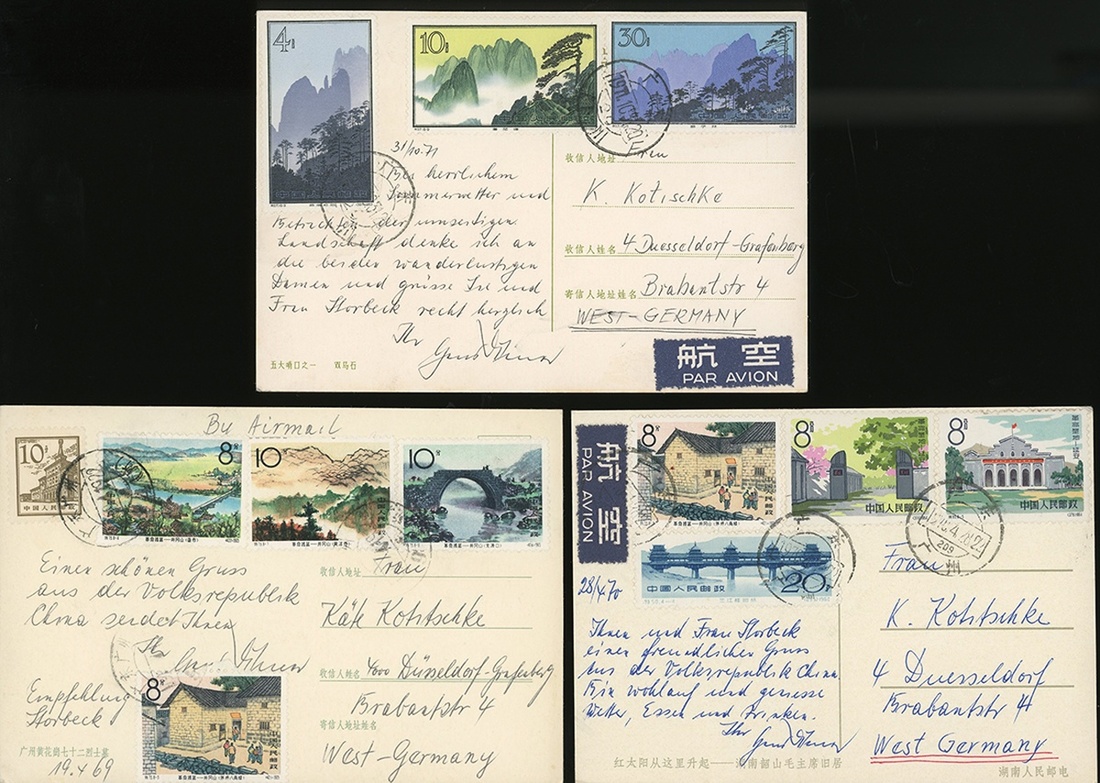 4分
10分
30分
31/10.71
Bei herrlichem
Sommerwetter und
Betrachten der umseitigen
Landschaft denke ich an
die beiden wanderlustigen
Damen und grüsse Sie und
Frau Storbeck recht herzlich
Ihr
五大哨口之一 双马石
收信人地址
Frau
K. Kotischke
收信人姓名
4 Duesseldorf-Grafenberg
寄信人地址姓名
Brabantstr 4
WEST-GERMANY
航空
PAR AVION
By Airmail
10分
中国人民邮政
8分
10分
10分
Einen schönen Gruss
aus der Volksrepublik
China sendet Ihnen
Ihr
Empfehlung
Storbeck
8分
中国人民邮政
广州黄花岗七十二烈士墓
19.4.69
收信人地址
Frau
Käte Kotitschke
收信人姓名
4000 Düsseldorf-Grafenberg
Brabantstr 4
寄信人地址姓名
West-Germany
航空
PAR AVION
8分
8分
中国人民邮政
8分
中国人民邮政
中国人民邮政
20分
28/4 70
Ihnen und Frau Storbeck
einen freundlichen Gruss
aus der Volksrepublik China
Bin wohlauf und geniesse
Wetter, Essen und Trinken.
Ihr
红太阳从这里升起——湖南韶山毛主席旧居
广州
209
Frau
K. Kotitschke
4 Duesseldorf
Brabantstr. 4
West Germany
湖南人民邮电